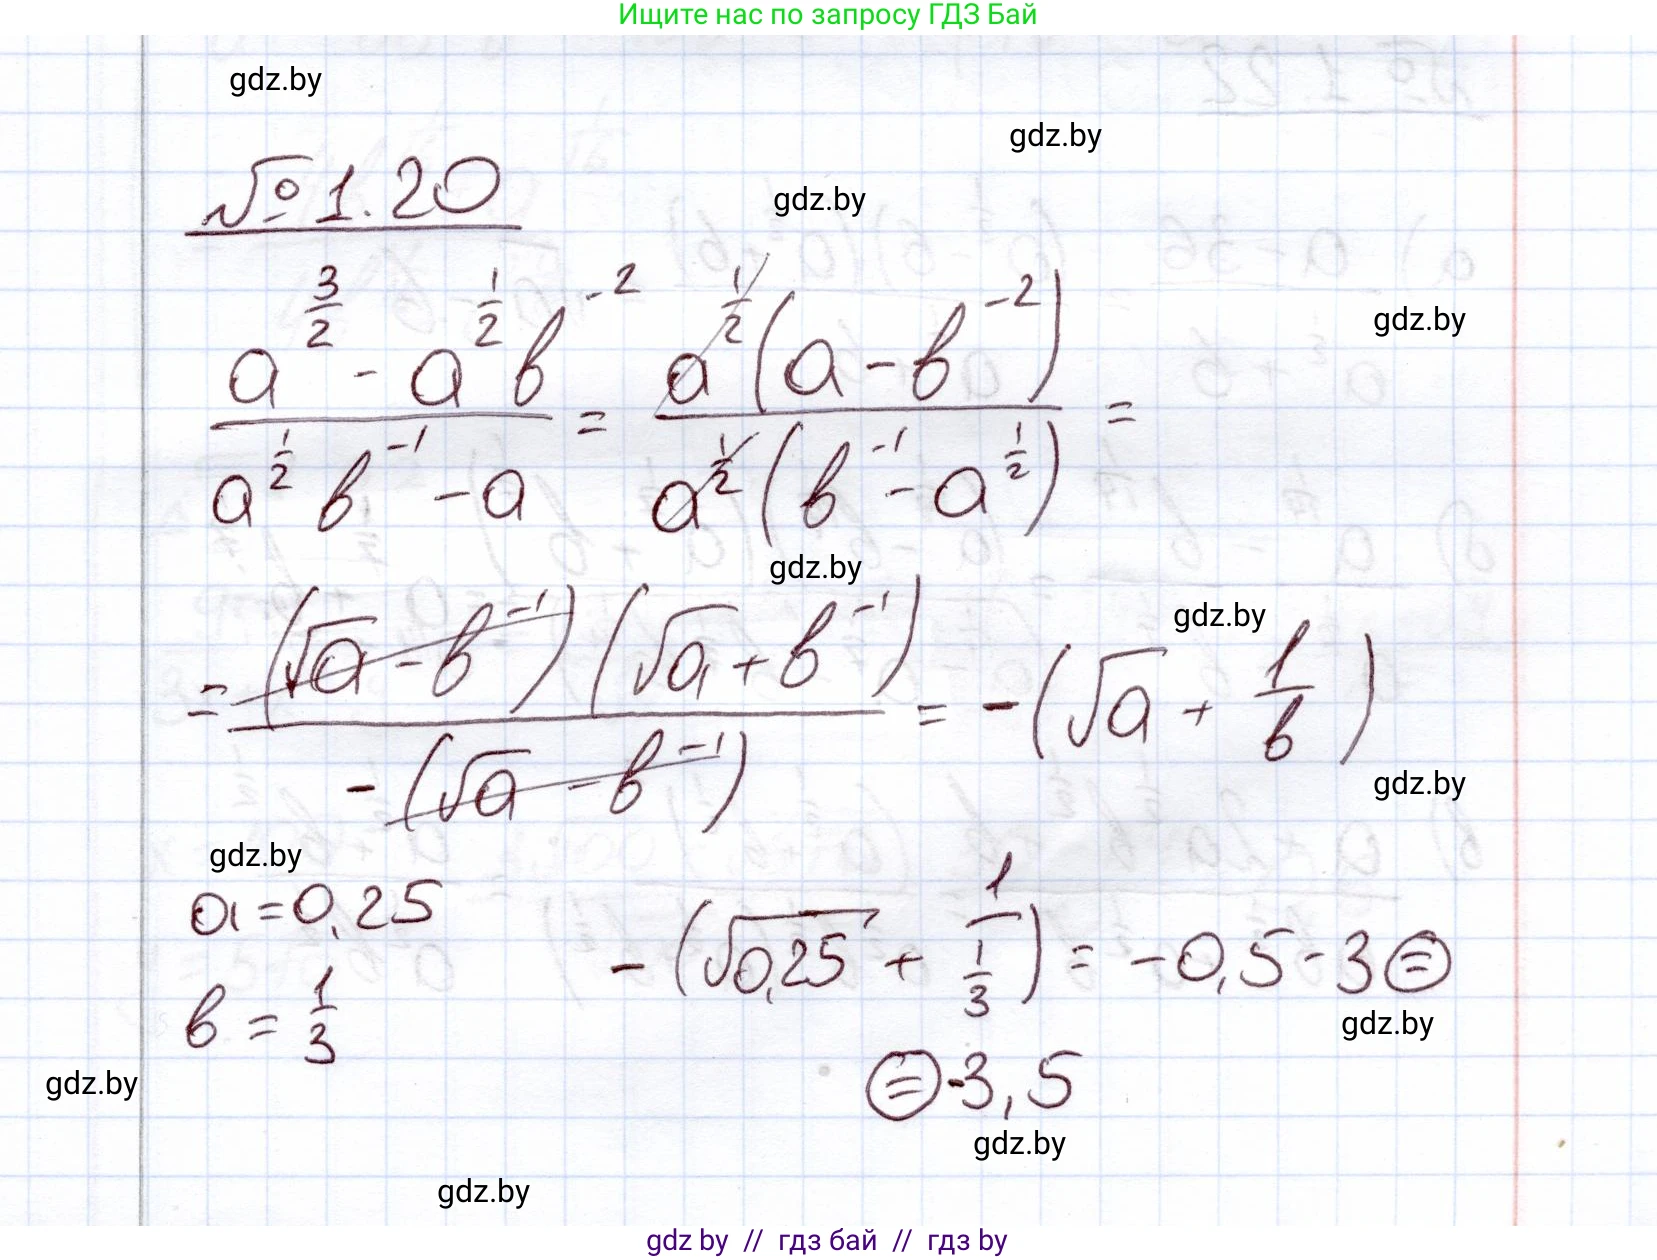 Ищите нас по запросу ГДЗ Бай
gdz.by
gdz.by
№ 1.20
gdz.by
a^{3/2} - a^{1/2} b^{-2} / a^{1/2} b^{-1} - a = a^{1/2} (a - b^{-2}) / a^{1/2} (b^{-1} - a^{1/2}) =
gdz.by
gdz.by
gdz.by
= (√a - b^{-1}) (√a + b^{-1}) / -(√a - b^{-1}) = -(√a + 1/b)
gdz.by
gdz.by
a = 0,25
-(√0,25 + 1/(1/3)) = -0,5 - 3 =
b = 1/3
gdz.by
= -3,5
gdz.by
gdz.by
gdz.by
gdz by // гдз бай // гдз by